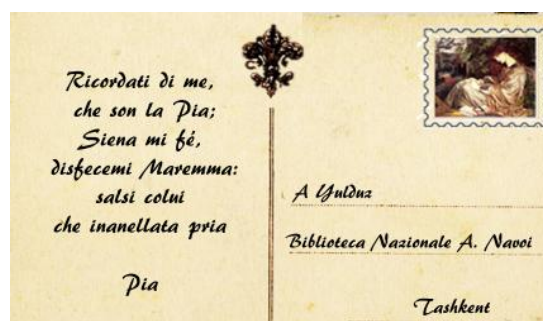 Ricordati di me,
che son la Pia;
Siena mi fé,
disfecemi Maremma:
salsi colui
che inanellata pria
Pia
A Yulduz
Biblioteca Nazionale A. Navoi
Tashkent